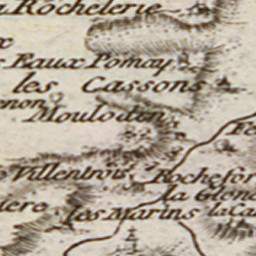 Rochelerie
x
Eaux Pomay
les Cassons
enon
Moulouden
Fe
Villentrois
Rochefor
la Glone
iere
les Marins
la Ca